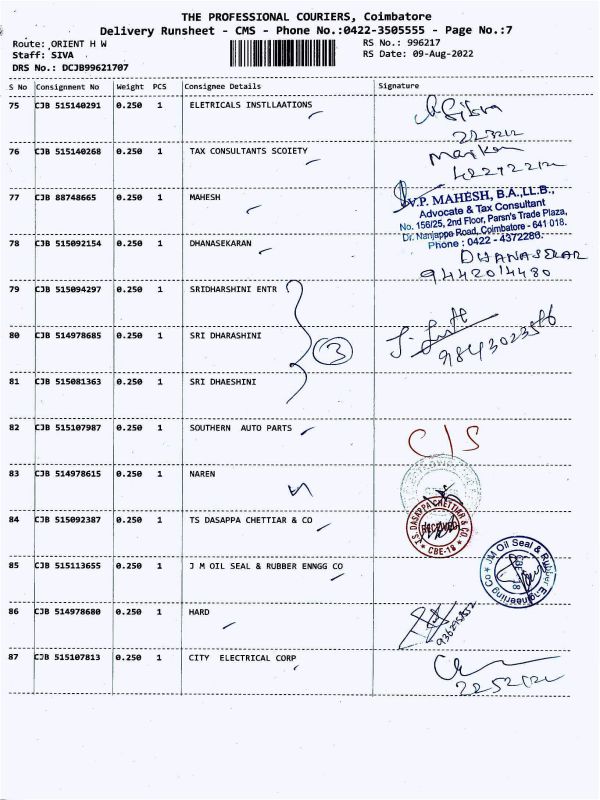 THE PROFESSIONAL COURIERS, Coimbatore
Delivery Runsheet - CMS - Phone No.:0422-3505555 - Page No.:7
Route: ORIENT H W
RS No.: 996217
Staff: SIVA
RS Date: 09-Aug-2022
DRS No.: DCJB99621707
S No Consignment No Weight PCS Consignee Details Signature
75 CJB 515140291 0.250 1 ELETRICALS INSTLLAATIONS
76 CJB 515140268 0.250 1 TAX CONSULTANTS SCOIETY
77 CJB 88748665 0.250 1 MAHESH
V.P. MAHESH, B.A.,LL.B.,
Advocate & Tax Consultant
No. 156/25, 2nd Floor, Parsn's Trade Plaza,
Dr. Nanjappa Road, Coimbatore - 641 018.
Phone : 0422 - 4372286.
78 CJB 515092154 0.250 1 DHANASEKARAN
DHANASEKAR
9442014480
79 CJB 515094297 0.250 1 SRIDHARSHINI ENTR
80 CJB 514978685 0.250 1 SRI DHARASHINI
3
9843023586
81 CJB 515081363 0.250 1 SRI DHAESHINI
82 CJB 515107987 0.250 1 SOUTHERN AUTO PARTS
C/S
83 CJB 514978615 0.250 1 NAREN
84 CJB 515092387 0.250 1 TS DASAPPA CHETTIAR & CO
T.S. DASAPPA CHETTIAR & CO.
RECEIVED
* CBE-18 *
85 CJB 515113655 0.250 1 J M OIL SEAL & RUBBER ENNGG CO
JM Oil Seal & Rubber Engineering Co
CBE-18
86 CJB 514978680 0.250 1 HARD
87 CJB 515107813 0.250 1 CITY ELECTRICAL CORP